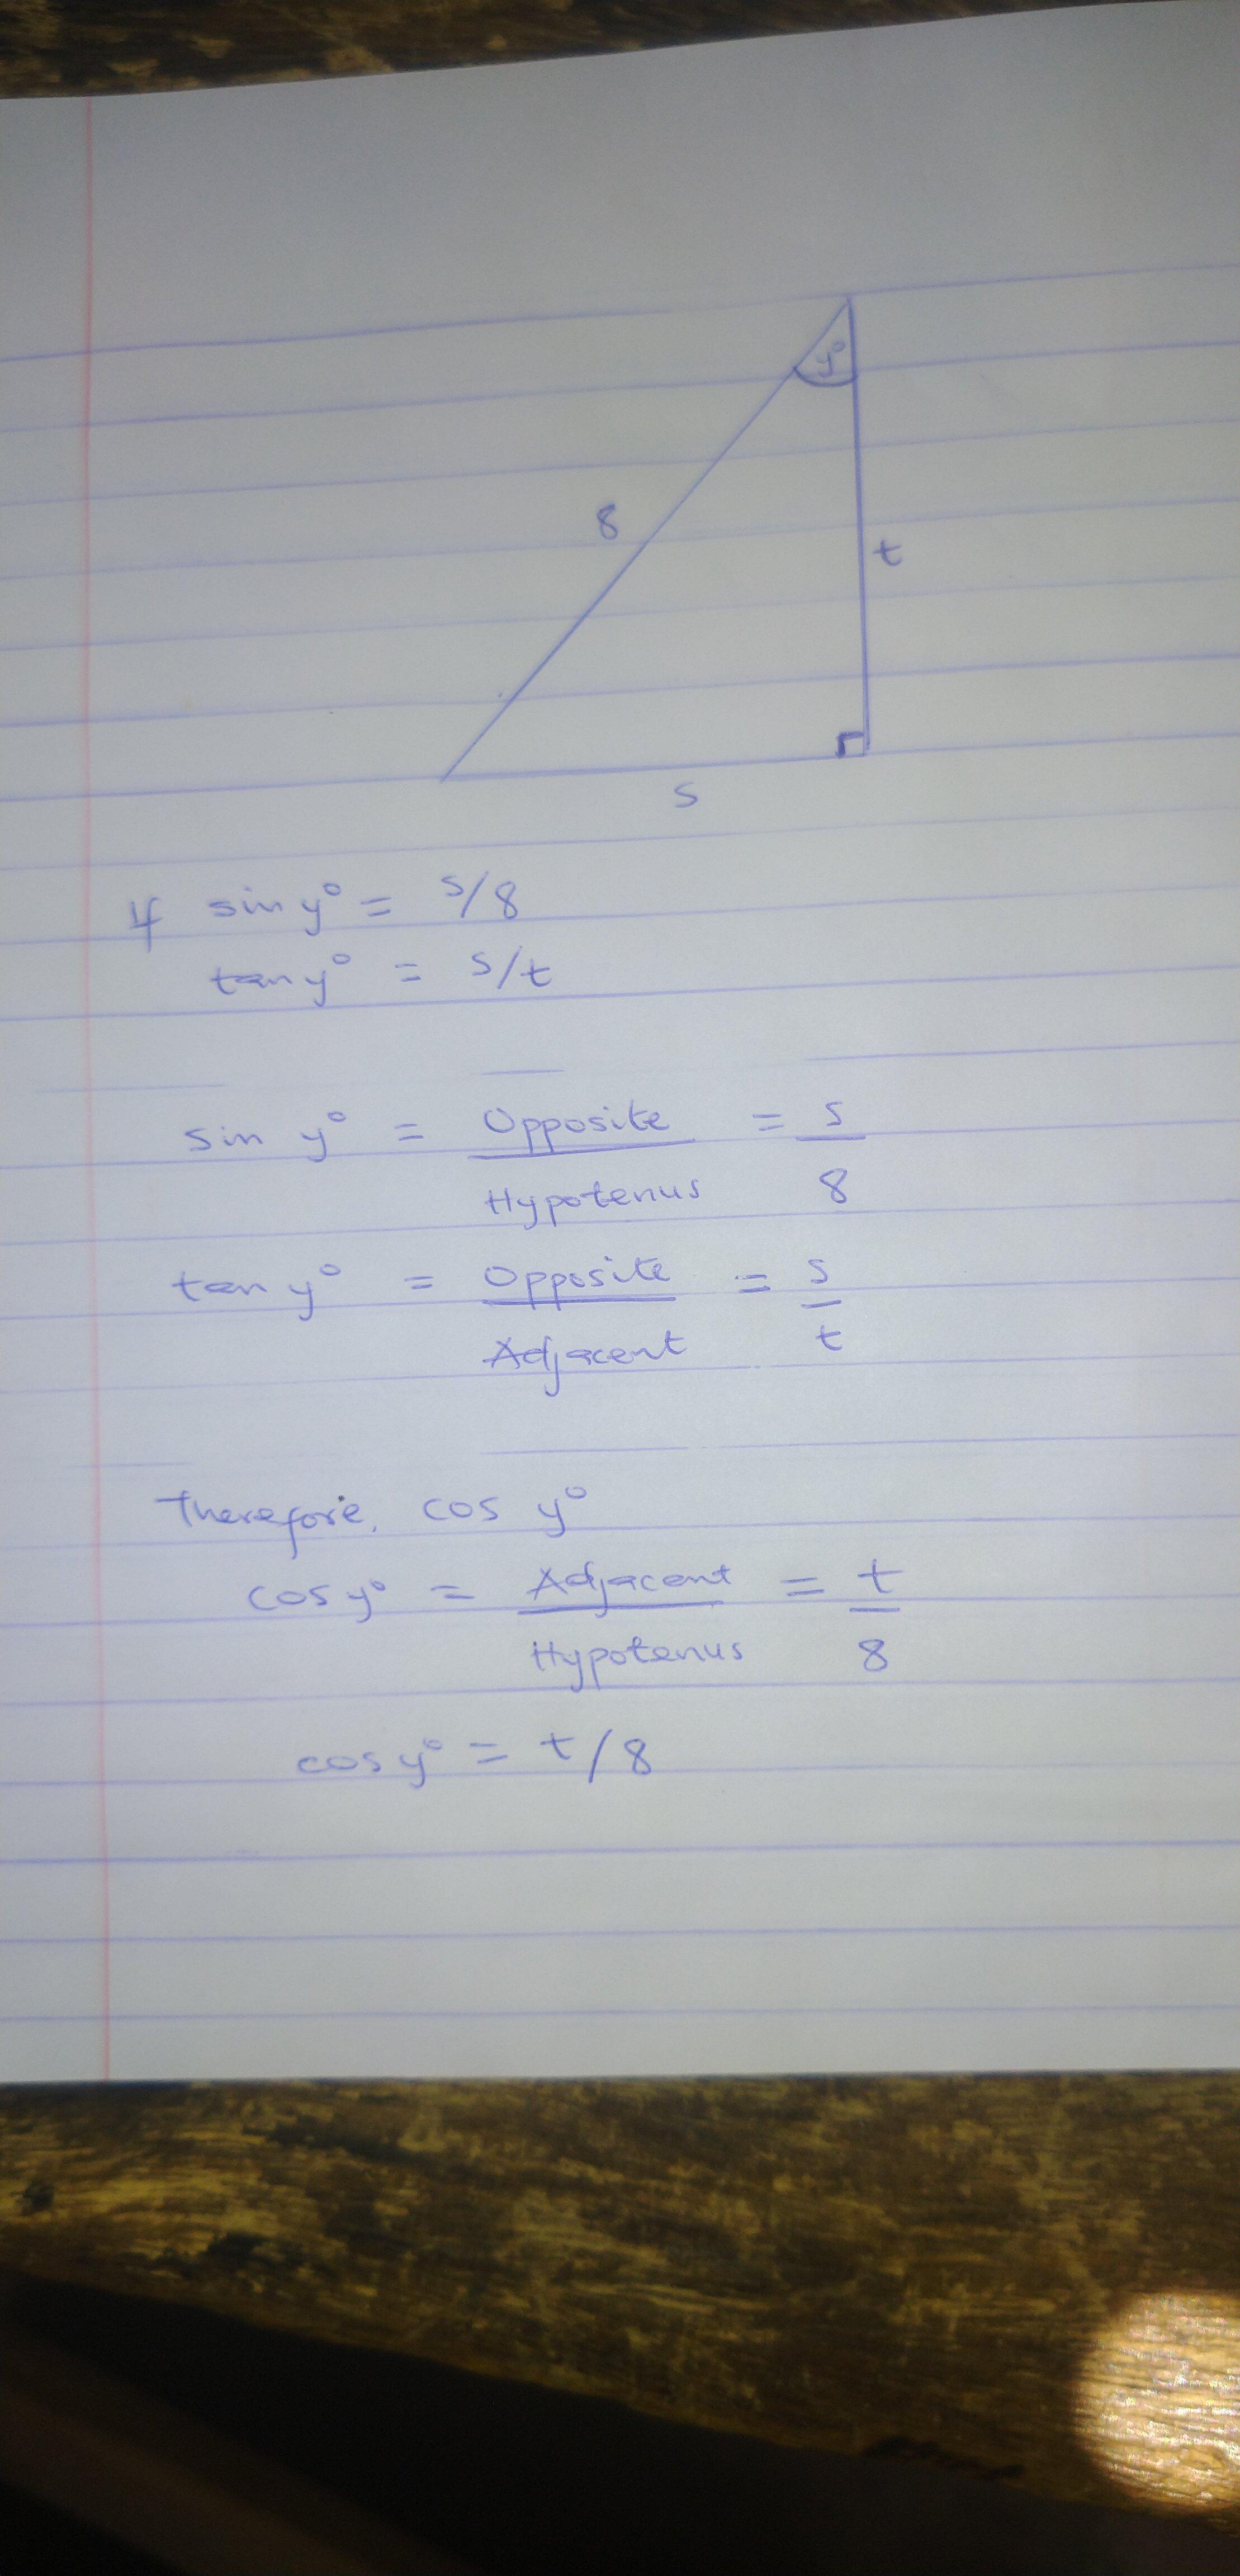 y°
8
t
s
If sin y° = s/8
tan y° = s/t
sin y° = Opposite = s
Hypotenus 8
tan y° = Opposite = s
Adjacent t
Therefore, cos y°
cos y° = Adjacent = t
Hypotenus 8
cos y° = t/8